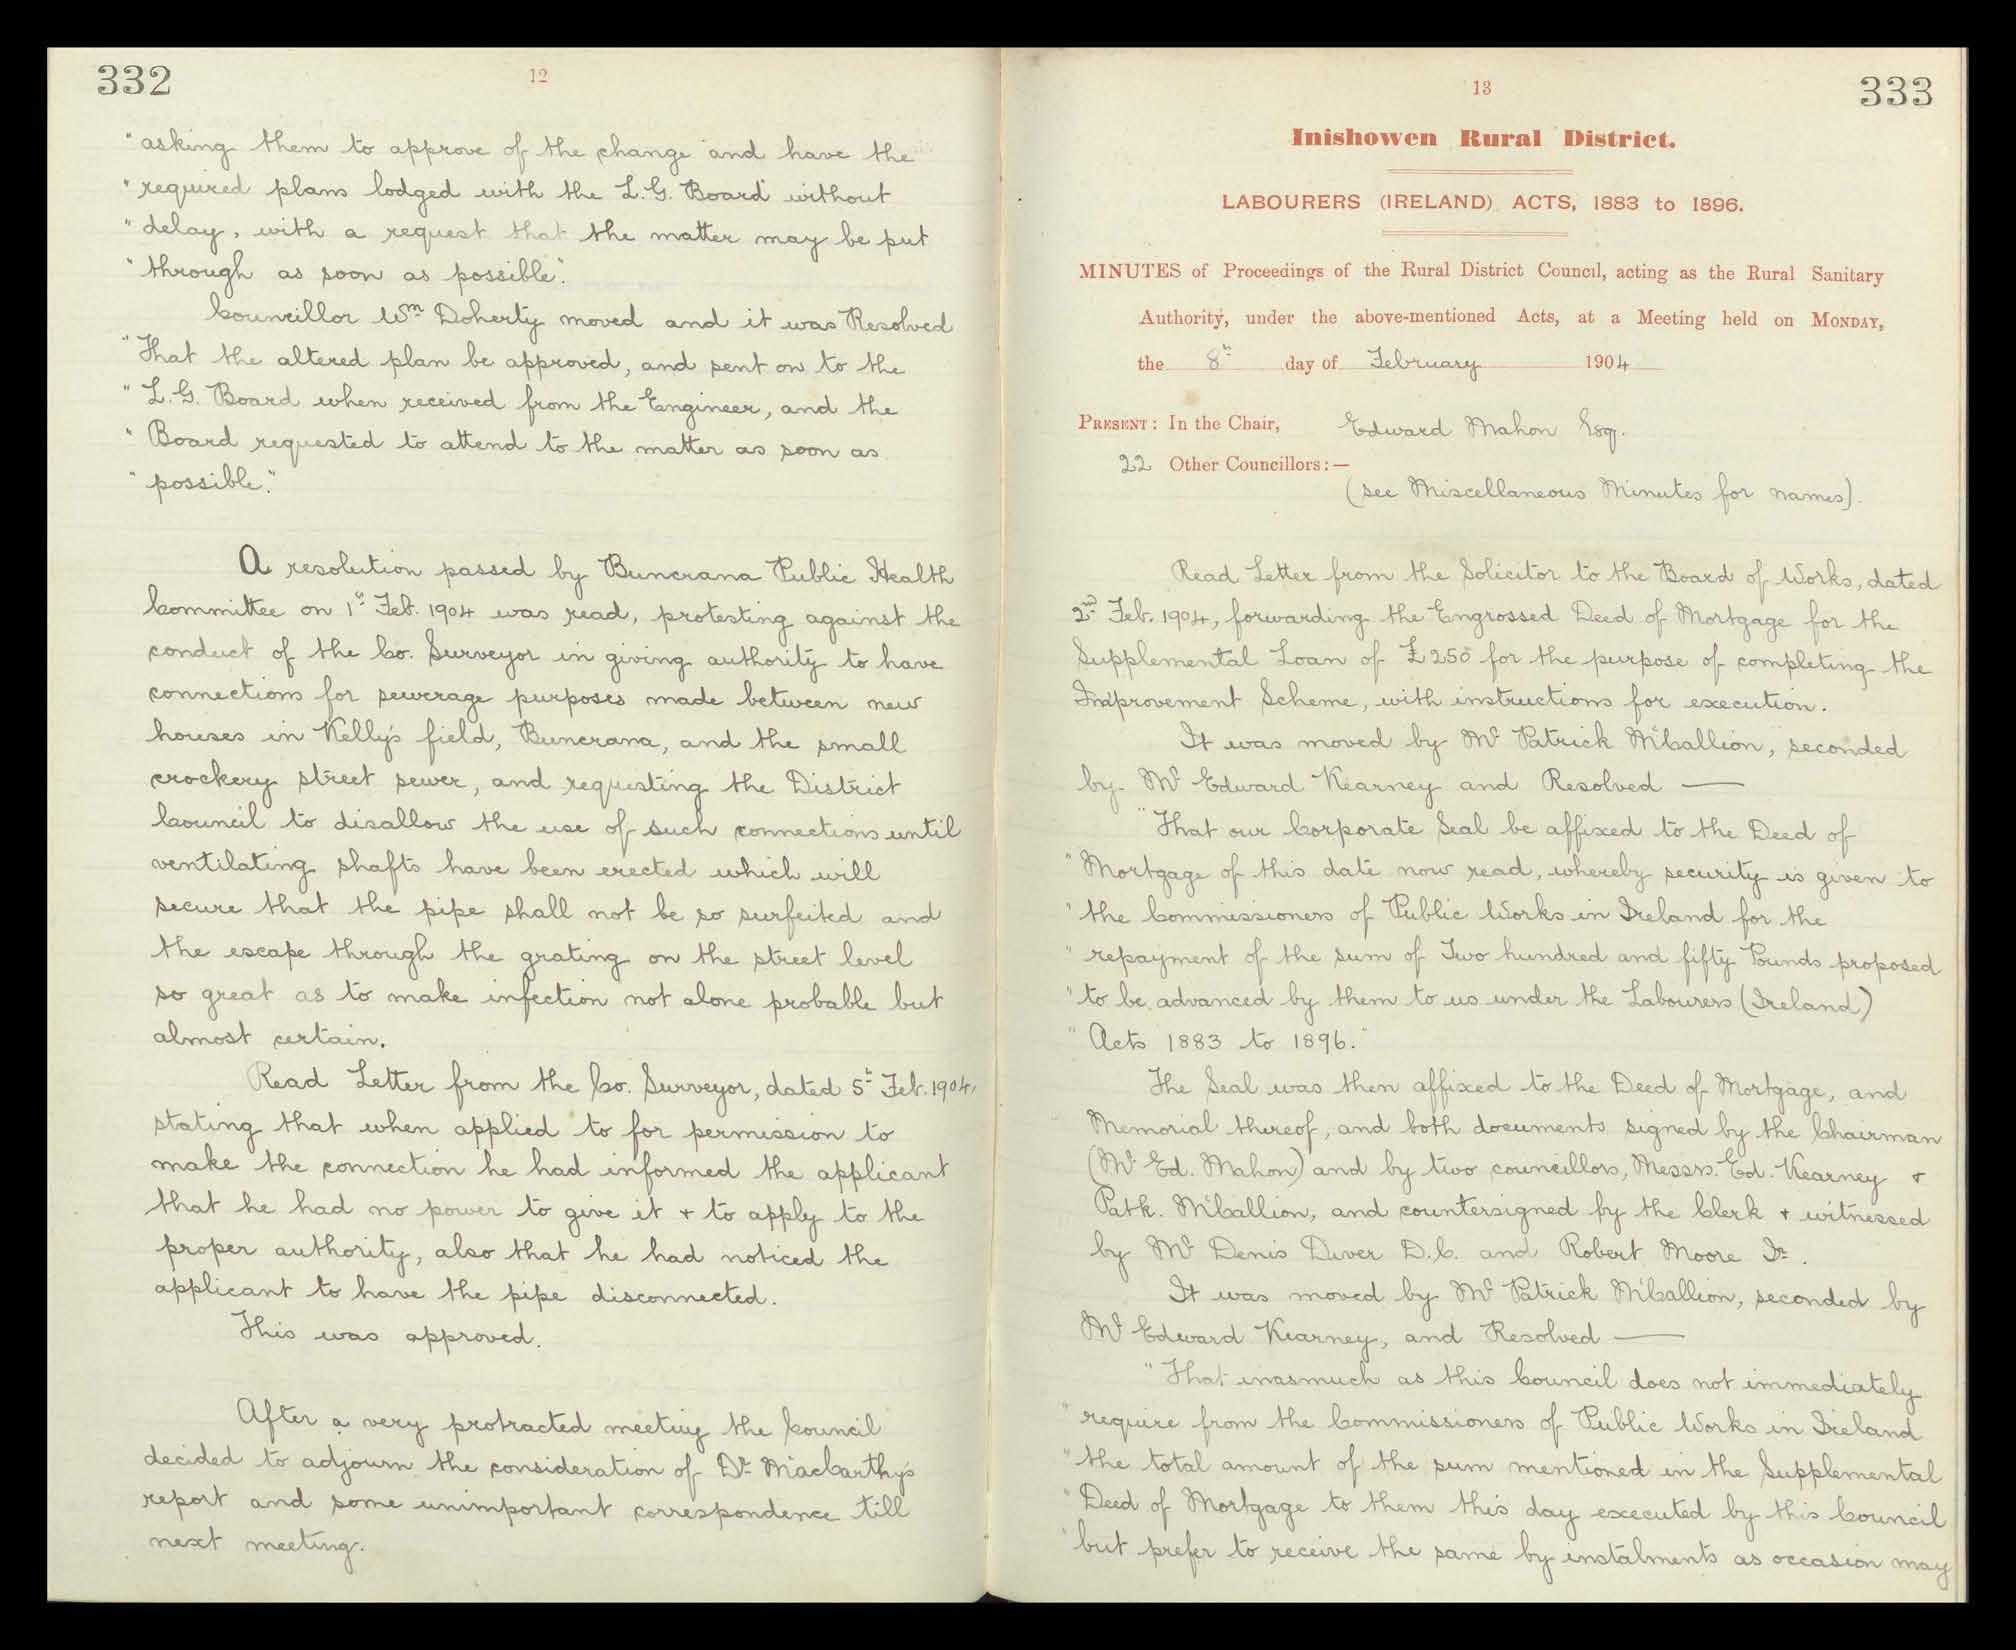 332
12
"asking them to approve of the change and have the
"required plans lodged with the L.G. Board without
"delay, with a request that the matter may be put
"through as soon as possible".
Councillor Wm Doherty moved and it was Resolved
"That the altered plan be approved, and sent on to the
"L.G. Board when received from the Engineer, and the
"Board requested to attend to the matter as soon as
"possible."
A resolution passed by Buncrana Public Health
Committee on 1st Feb. 1904 was read, protesting against the
conduct of the Co. Surveyor in giving authority to have
connections for sewerage purposes made between new
houses in Kelly's field, Buncrana, and the small
crockery street sewer, and requesting the District
Council to disallow the use of such connections until
ventilating shafts have been erected which will
secure that the pipe shall not be so surfeited and
the escape through the grating on the street level
so great as to make infection not alone probable but
almost certain.
Read Letter from the Co. Surveyor, dated 5th Feb. 1904,
stating that when applied to for permission to
make the connection he had informed the applicant
that he had no power to give it & to apply to the
proper authority, also that he had noticed the
applicant to have the pipe disconnected.
This was approved.
After a very protracted meeting the Council
decided to adjourn the consideration of Dr MacCarthy's
report and some unimportant correspondence till
next meeting.
13
333
Inishowen Rural District.
LABOURERS (IRELAND) ACTS, 1883 to 1896.
MINUTES of Proceedings of the Rural District Council, acting as the Rural Sanitary
Authority, under the above-mentioned Acts, at a Meeting held on MONDAY,
the 8th day of February 1904
PRESENT: In the Chair, Edward Mahon Esq.
22 Other Councillors:—
(see Miscellaneous Minutes for names).
Read Letter from the Solicitor to the Board of Works, dated
2nd Feb. 1904, forwarding the Engrossed Deed of Mortgage for the
Supplemental Loan of £250 for the purpose of completing the
Improvement Scheme, with instructions for execution.
It was moved by Mr Patrick McCallion, seconded
by Mr Edward Kearney and Resolved —
"That our Corporate Seal be affixed to the Deed of
"Mortgage of this date now read, whereby security is given to
"the Commissioners of Public Works in Ireland for the
"repayment of the sum of Two hundred and fifty Pounds proposed
"to be advanced by them to us under the Labourers (Ireland)
"Acts 1883 to 1896."
The Seal was then affixed to the Deed of Mortgage, and
Memorial thereof, and both documents signed by the Chairman
(Mr Ed. Mahon) and by two councillors, Messrs. Ed. Kearney &
Patk. McCallion, and countersigned by the Clerk & witnessed
by Mr Denis Diver D.C. and Robert Moore Jr.
It was moved by Mr Patrick McCallion, seconded by
Mr Edward Kearney, and Resolved —
"That inasmuch as this Council does not immediately
"require from the Commissioners of Public Works in Ireland
"the total amount of the sum mentioned in the Supplemental
"Deed of Mortgage to them this day executed by this Council
"but prefer to receive the same by instalments as occasion may